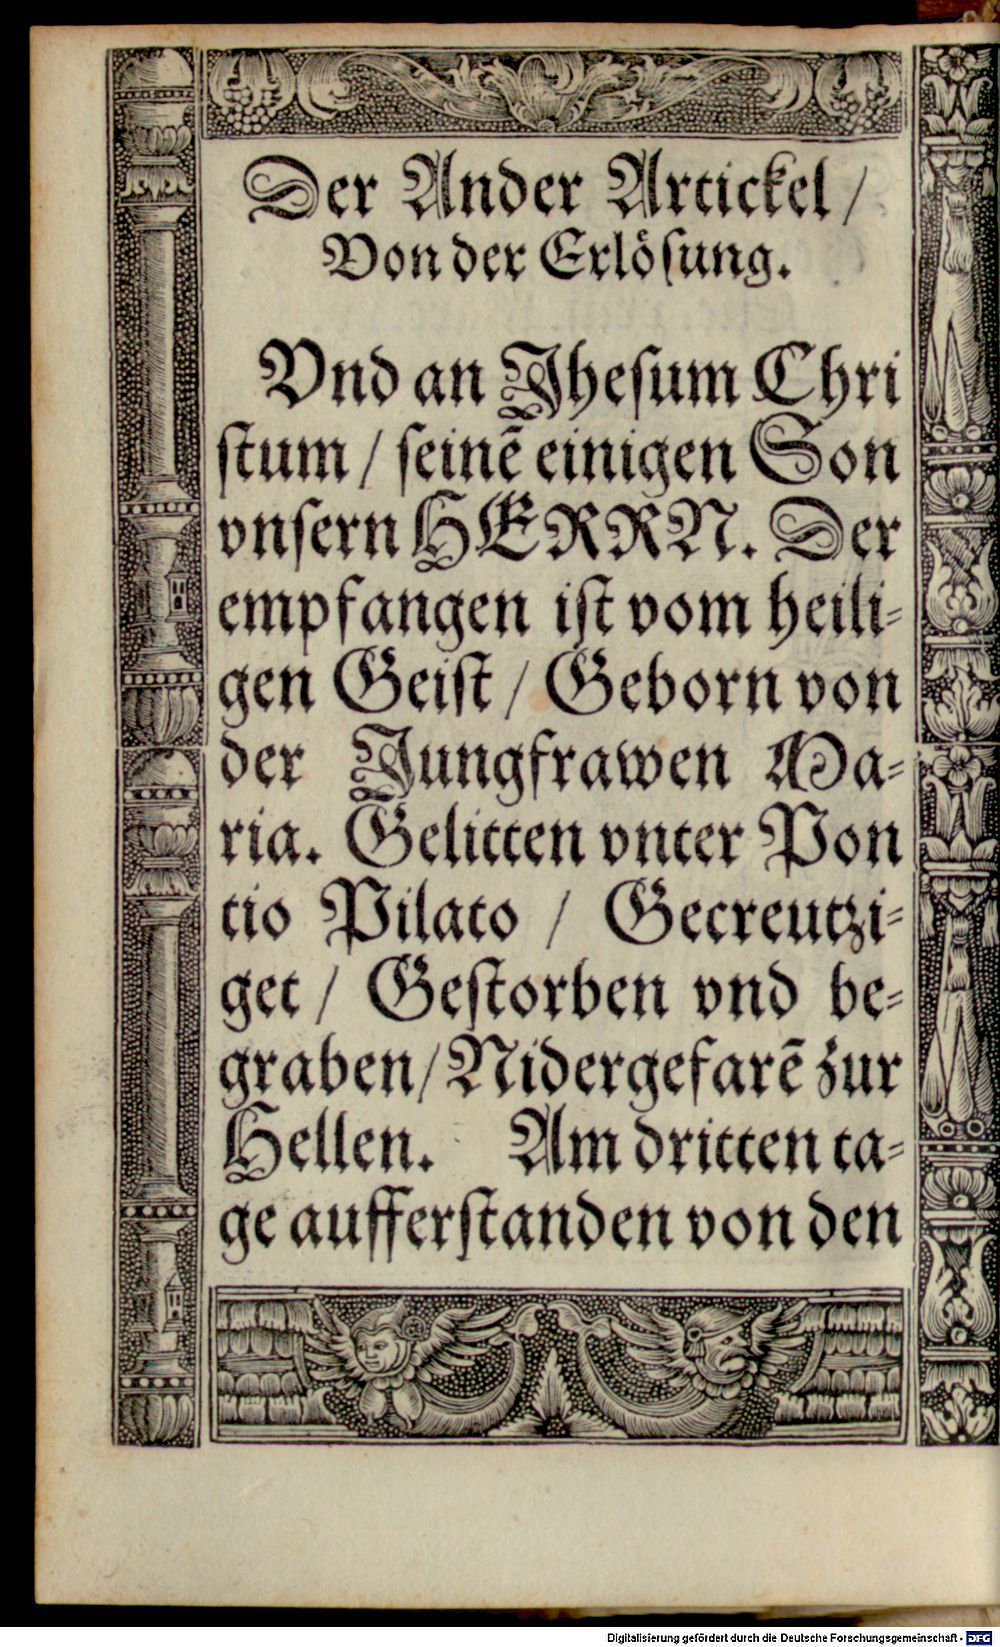 Der Ander Artickel /
Von der Erlösung.
Vnd an Jhesum Chri
stum / seinē einigen Son
vnsern HERRN. Der
empfangen ist vom heili-
gen Geist / Geborn von
der Jungfrawen Ma-
ria. Gelitten vnter Pon
tio Pilato / Gecreutzi-
get / Gestorben vnd be-
graben / Nidergefarē zur
Hellen. Am dritten ta-
ge aufferstanden von den
Digitalisierung gefördert durch die Deutsche Forschungsgemeinschaft - DFG